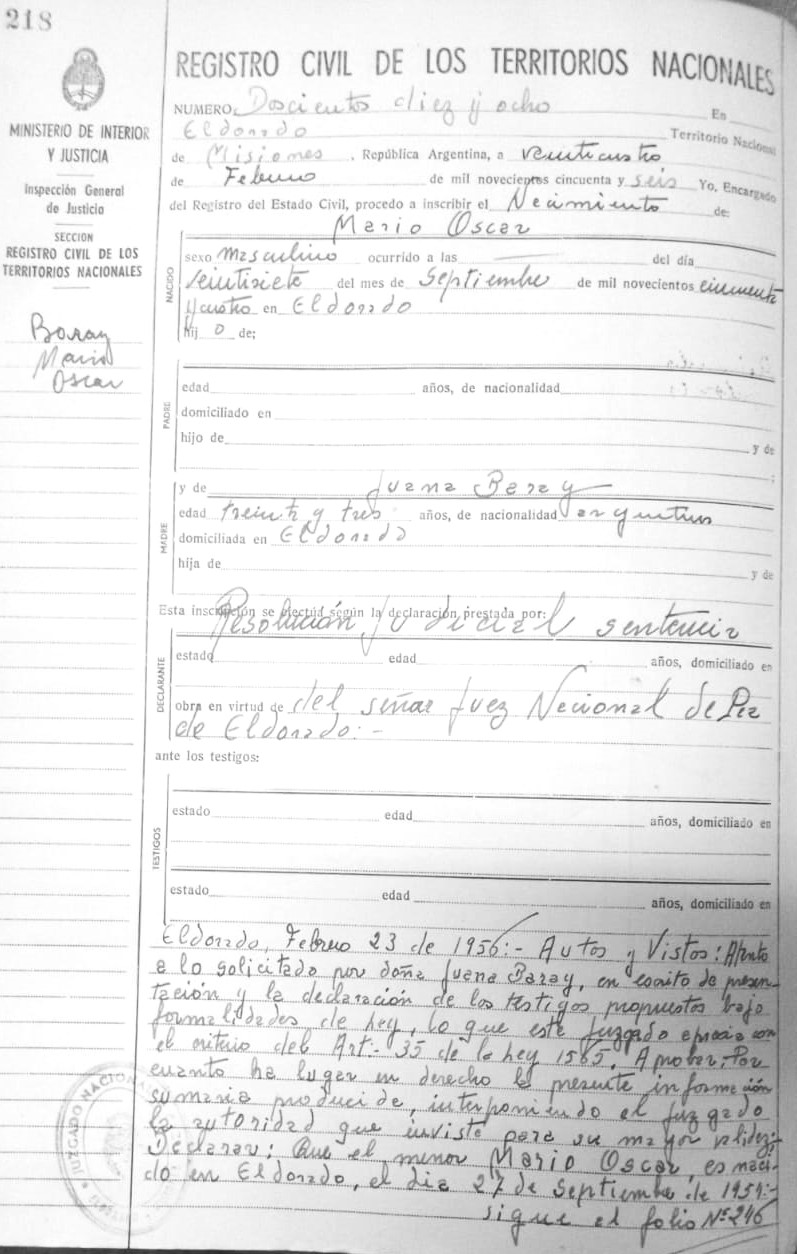 218
MINISTERIO DE INTERIOR
Y JUSTICIA
Inspección General
de Justicia
SECCION
REGISTRO CIVIL DE LOS
TERRITORIOS NACIONALES
Baray
Mario
Oscar
REGISTRO CIVIL DE LOS TERRITORIOS NACIONALES
NUMERO Doscientos diez y ocho En
Eldorado Territorio Nacional
de Misiones, República Argentina, a veinticuatro
de Febrero de mil novecientos cincuenta y seis Yo, Encargado
del Registro del Estado Civil, procedo a inscribir el Nacimiento de:
NACIDO
Mario Oscar
sexo masculino ocurrido a las del día
veintisiete del mes de Septiembre de mil novecientos cincuenta
y cuatro en Eldorado
hij o de;
PADRE
edad años, de nacionalidad
domiciliado en
hijo de y de
;
MADRE
y de Juana Baray
edad treinta y tres años, de nacionalidad argentina
domiciliada en Eldorado
hija de y de
Esta inscripción se efectúa según la declaración prestada por:
DECLARANTE
Resolución Judicial sentencia
estado edad años, domiciliado en
obra en virtud de del señor Juez Nacional de Paz
de Eldorado:-
ante los testigos:
TESTIGOS
estado edad años, domiciliado en
estado edad años, domiciliado en
Eldorado, Febrero 23 de 1956:- Autos y Vistos: Atento
a lo solicitado por doña Juana Baray, en escrito de presen-
tación y la declaración de los testigos propuestos bajo
formalidades de ley, lo que este Juzgado aprecia con
el criterio del Art:- 35 de la ley 1565, Aprobar; Por
cuanto ha lugar en derecho la presente información
sumaria producida, interponiendo el Juzgado
la autoridad que inviste para su mayor validez;-
Declarar: Que el menor Mario Oscar, es naci-
do en Eldorado, el dia 27 de Septiembre de 1954:-
sigue el folio Nº 246
JUZGADO NACIONAL